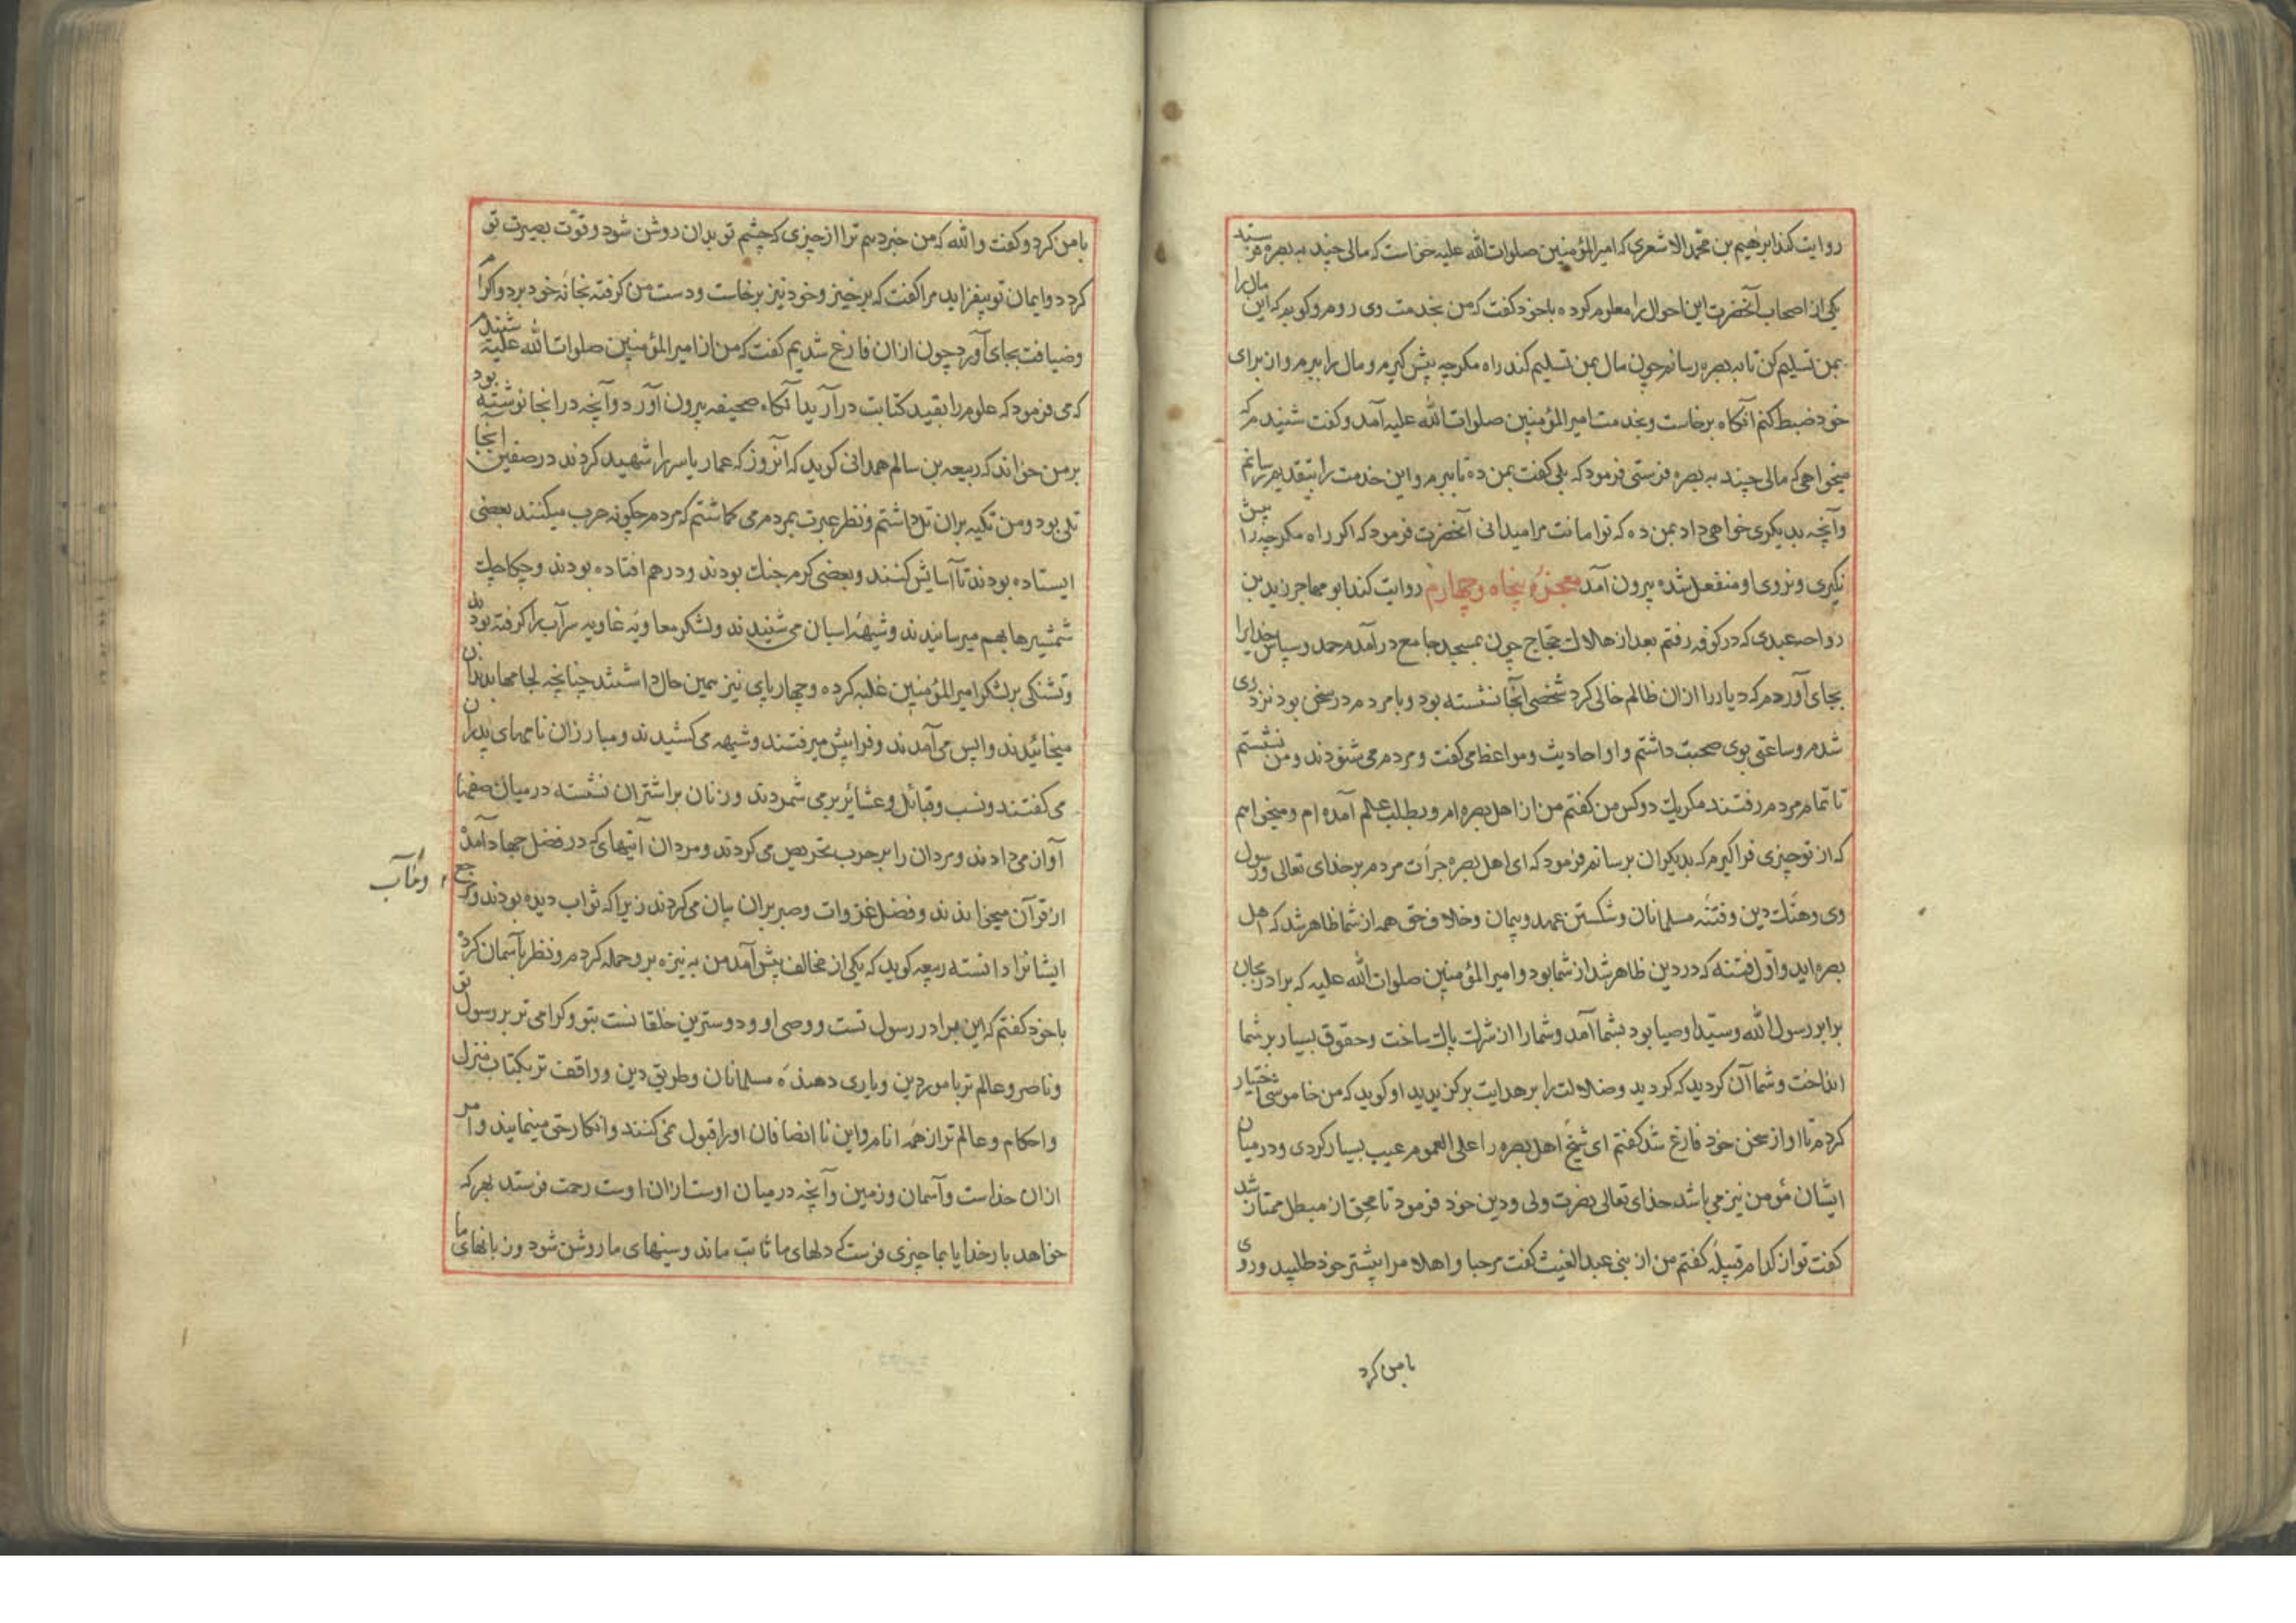 روایت کند ابرهیم بن محمد الاشعری که امیرالمؤمنین صلوات الله علیه خواست که مالی چند به بصره فرستد
یکی از اصحاب آنحضرت این احوال را معلوم کرده با خود گفت که من بخدمت وی روم و کویم که این مال را
بمن تسلیم کن تا به بصره رسانم چون مال بمن تسلیم کند راه مکرجه پیش کیرم و مال را ببرم و از برای
خود ضبط کنم آنکاه برخاست و بخدمت امیرالمؤمنین صلوات الله علیه آمد و کفت شنیدم که
میخواهی که مالی چند به بصره فرستی فرمود که بلی کفت بمن ده تا ببرم و این خدمت را بتقدیم رسانم
وآنچه بدیکری خواهی داد بمن ده که تو امانت مرا میدانی آنحضرت فرمود که اکر راه مکرجه را پیش
نکیری و نروی او منفعل شده بیرون آمد معجزه پنجاه و چهارم روایت کند ابو مهاجر زید بن
رواحه عبدی که در کوفه رفتم بعد از هلاک حجاج چون بمسجد جامع در آمدم حمد و سپاس خدایرا
بجای آوردم که دیار را از ان ظالم خالی کرد شخصی آنجا نشسته بود و با مردم در سخن بود نزد وی
شدم و ساعتی بوی صحبت داشتم و او احادیث و مواعظ می کفت و مردم می شنودند و من نشستم
تا تمام مردم رفتند مکر یک دو کس من کفتم من از اهل بصره ام و بطلب علم آمده ام و میخواهم
که از تو چیزی فرا کیرم که بدیکران برسانم فرمود که ای اهل بصره جرأت مردم بر خدای تعالی و رسول
وی و هتک دین و فتنه مسلمانان و شکستن عهد و پیمان و خلاف حق همه از شما ظاهر شد که اهل
بصره اید و اول فتنه که در دین ظاهر شد از شما بود و امیرالمؤمنین صلوات الله علیه که برادر بجان
برابر رسول الله و سید اوصیا بود بشما آمد و شما را از شرک پاک ساخت و حقوق بسیار بر شما
انداخت و شما آن کردید که کردید و ضلالت را بر هدایت برکزیدید او کوید که من خاموشی اختیار
کردم تا او از سخن خود فارغ شد کفتم ای شیخ اهل بصره را علی العموم عیب بسیار کردی و در میان
ایشان مؤمن نیز می باشد خدای تعالی نصرت ولی و دین خود فرمود تا محق از مبطل ممتاز شد
کفت تو از کدام قبیله کفتم من از بنی عبد الغیث کفت مرحبا و اهلا مرا پیشتر خود طلبید و روی
بامن کرد
بامن کرد و کفت والله که من خبر دهم ترا از چیزی که چشم تو بدان روشن شود و قوت بصیرت تو
کردد و ایمان تو بیفزاید مرا کفت که برخیز و خود نیز برخاست و دست من کرفته بخانه خود برد و اکرام
وضیافت بجای آورد چون ازان فارغ شدیم کفت که من از امیرالمؤمنین صلوات الله علیه شنیدم
که می فرمود که علوم را بقید کتابت در آرید آنکاه صحیفه بیرون آورد و آنچه در انجا نوشته بود
بر من خواند که ربیعه بن سالم همدانی کوید که آنروز که عمار یاسر را شهید کردند در صفین انجا
تلی بود و من تکیه بران تل داشتم و نظر عبرت بمردم می کماشتم که مردم چکونه حرب میکنند بعضی
ایستاده بودند تا آسایش کنند و بعضی کرم جنک بودند و درهم افتاده بودند و چکاچک
شمشیرها بهم میرسانیدند و شیهه اسبان می شنیدند و لشکر معاویه غاویه سر آب را کرفته بودند
وتشنکی بر لشکر امیرالمؤمنین غلبه کرده و چهارپای نیز همین حال داشتند چنانچه لجامها بدندان
میخائیدند و اپس می آمدند و فرا پیش میرفتند و شیهه می کشیدند و مبارزان نامهای پدران
می کفتند و نسب و قبائل و عشائر بر می شمردند و زنان بر اشتران نشسته در میان صفها
آواز می دادند و مردان را بر حرب تحریص می کردند و مردان آیتهای که در فضل جهاد آمده
از قرآن میخواندند و فضل غزوات و صبر بران بیان می کردند زیرا که ثواب دیده بودند و مرجع
و مآب
ایشانرا دانسته ربیعه کوید که یکی از مخالف پیش آمد من به نیزه برو حمله کردم و نظر بآسمان کرده
با خود کفتم که این برادر رسول تست و وصی او و دوسترین خلقانست بتو و کرامی تر بر رسول تو
وناصر و عالم تر بامور دین و یاری دهنده مسلمانان و طریق دین و واقف تر بکتاب منزل
واحکام و عالم تر از همه انام و این نا انصافان او را قبول نمی کنند و انکار حق مینمایند و امر
ازان خداست و آسمان و زمین و آنچه در میان اوست ازان اوست رحمت فرستد بهر که
خواهد بار خدایا بما چیزی فرست که دلهای ما ثابت ماند و سینهای ما روشن شود و زبانهای ما